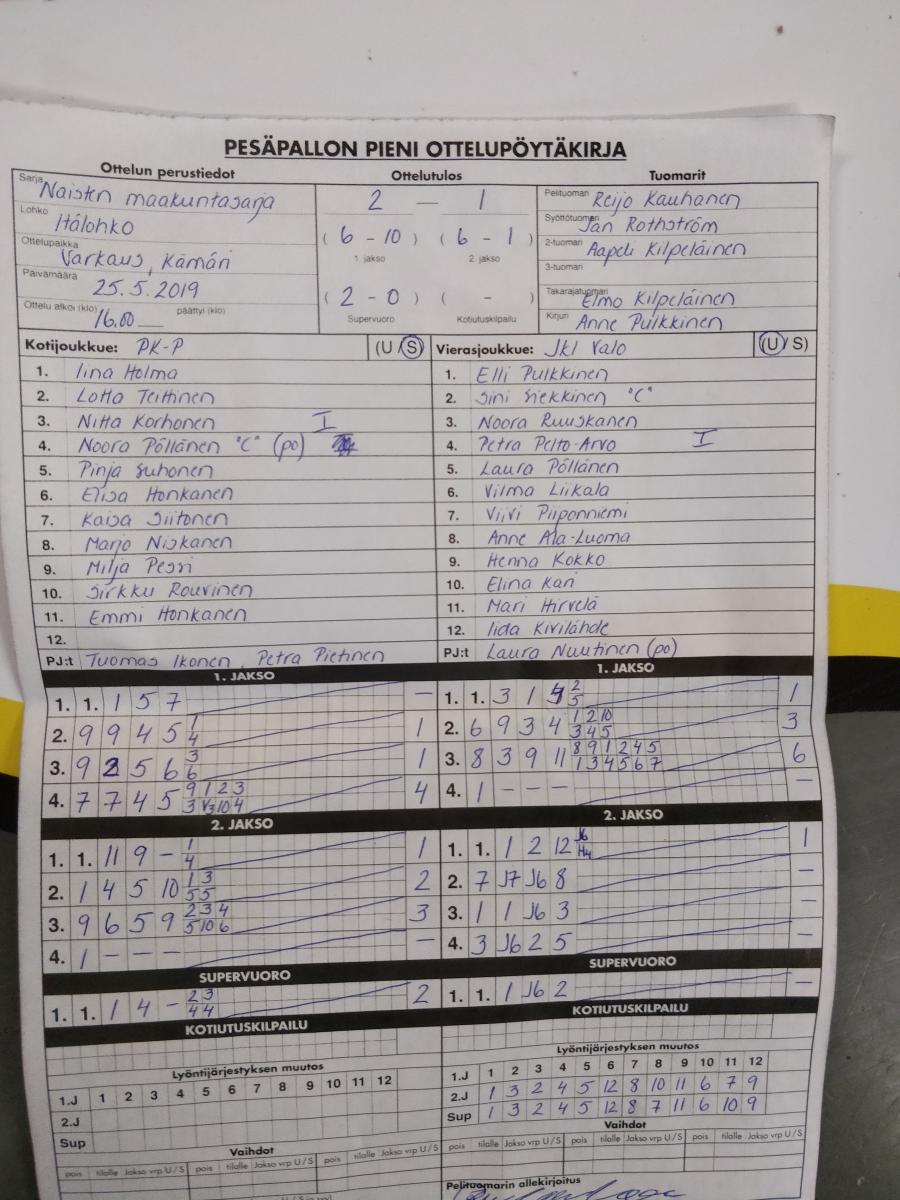 PESÄPALLON PIENI OTTELUPÖYTÄKIRJA
Ottelun perustiedot Ottelutulos Tuomarit
Sarja Naisten maakuntasarja
Lohko Itälohko
Ottelupaikka Varkaus, Kämäri
Päivämäärä 25.5.2019
Ottelu alkoi (klo) 16.00 päättyi (klo)
2 — 1
( 6 - 10 ) ( 6 - 1 )
1. jakso 2. jakso
( 2 - 0 ) ( - )
Supervuoro Kotiutuskilpailu
Pelituomari Reijo Kauhanen
Syöttötuomari Jan Rothström
2-tuomari Aapeli Kilpeläinen
3-tuomari
Takarajatuomari Elmo Kilpeläinen
Kirjuri Anne Pulkkinen
Kotijoukkue: PK-P (U/S)
1. Iina Holma
2. Lotta Teittinen
3. Niitta Korhonen I
4. Noora Pöllänen "C" (po)
5. Pinja Suhonen
6. Elisa Honkanen
7. Kaisa Siitonen
8. Marjo Niskanen
9. Milja Pesri
10. Sirkku Rouvinen
11. Emmi Honkanen
12.
PJ:t Tuomas Ikonen, Petra Pietinen
Vierasjoukkue: JKL Valo (U/S)
1. Elli Pulkkinen
2. Sini Siekkinen "C"
3. Noora Ruuskanen
4. Petra Pelto-Arvo I
5. Laura Pöllänen
6. Vilma Liikala
7. Viivi Piiponniemi
8. Anne Ala-Luoma
9. Henna Kokko
10. Elina Kari
11. Mari Hirvelä
12. Iida Kivilähde
PJ:t Laura Nuutinen (po)
1. JAKSO
1. 1. 1 5 7 —
2. 9 9 4 5 1 4 1
3. 9 2 5 6 3 6 1
4. 7 7 4 5 9 1 2 3 3 V3 10 4 4
2. JAKSO
1. 1. 11 9 - 1 4 1
2. 1 4 5 10 1 3 5 5 2
3. 9 6 5 9 2 3 4 5 10 6 3
4. 1 - - - —
SUPERVUORO
1. 1. 1 4 - 2 3 4 4 2
KOTIUTUSKILPAILU
Lyöntijärjestyksen muutos
1.J 1 2 3 4 5 6 7 8 9 10 11 12
2.J
Sup
Vaihdot
pois tilalle Jakso vrp U/S pois tilalle Jakso vrp U/S pois tilalle Jakso vrp U/S
1. JAKSO
1. 1. 3 1 2 5 1
2. 6 9 3 4 1 2 10 3 4 5 3
3. 8 3 9 11 8 9 1 2 4 5 1 3 4 5 6 7 6
4. 1 - - - —
2. JAKSO
1. 1. 1 2 12 J6 H4 1
2. 7 J7 J6 8 —
3. 1 1 J6 3 —
4. 3 J6 2 5 —
SUPERVUORO
1. 1. 1 J6 2 —
KOTIUTUSKILPAILU
Lyöntijärjestyksen muutos
1.J 1 2 3 4 5 6 7 8 9 10 11 12
2.J 1 3 2 4 5 12 8 10 11 6 7 9
Sup 1 3 2 4 5 12 8 7 11 6 10 9
Vaihdot
pois tilalle Jakso vrp U/S pois tilalle Jakso vrp U/S pois tilalle Jakso vrp U/S
Pelituomarin allekirjoitus